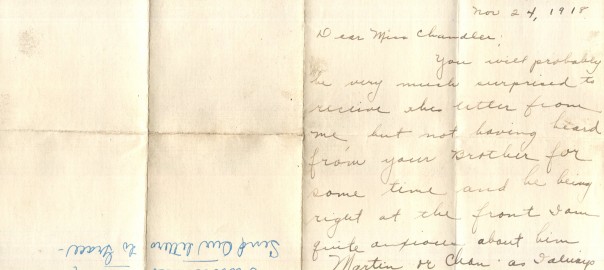 Nov 24, 1918
Dear Miss Chandler,
You will probably
be very much surprised to
receive this letter from
me but not having heard
from your Brother for
some time and he being
right at the front I am
quite anxious about him
Martin or Chan as I always
Send our letters
to Grace-